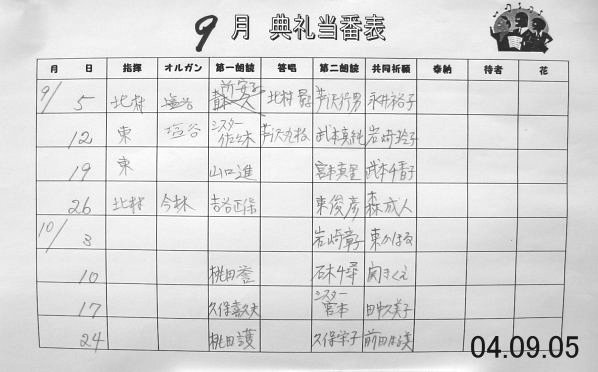 9月 典礼当番表
月 日 指揮 オルガン 第一朗読 答唱 第二朗読 共同祈願 奉納 侍者 花
9/5 北村 塩谷 北村 芦沢行男 永井裕子
12 東 塩谷 シスター佐々木 芦沢九松 武本真純 岩崎玲子
19 東 山口進 宮本真里 武本千香子
26 北村 今林 吉谷正保 東俊彦 森成人
10/3 岩崎章子 東かほる
10 桃田誉 石木千尋 関きくえ
17 久保喜久夫 シスター宮本 田中久美子
24 桃田護 久保栄子 前田
04.09.05